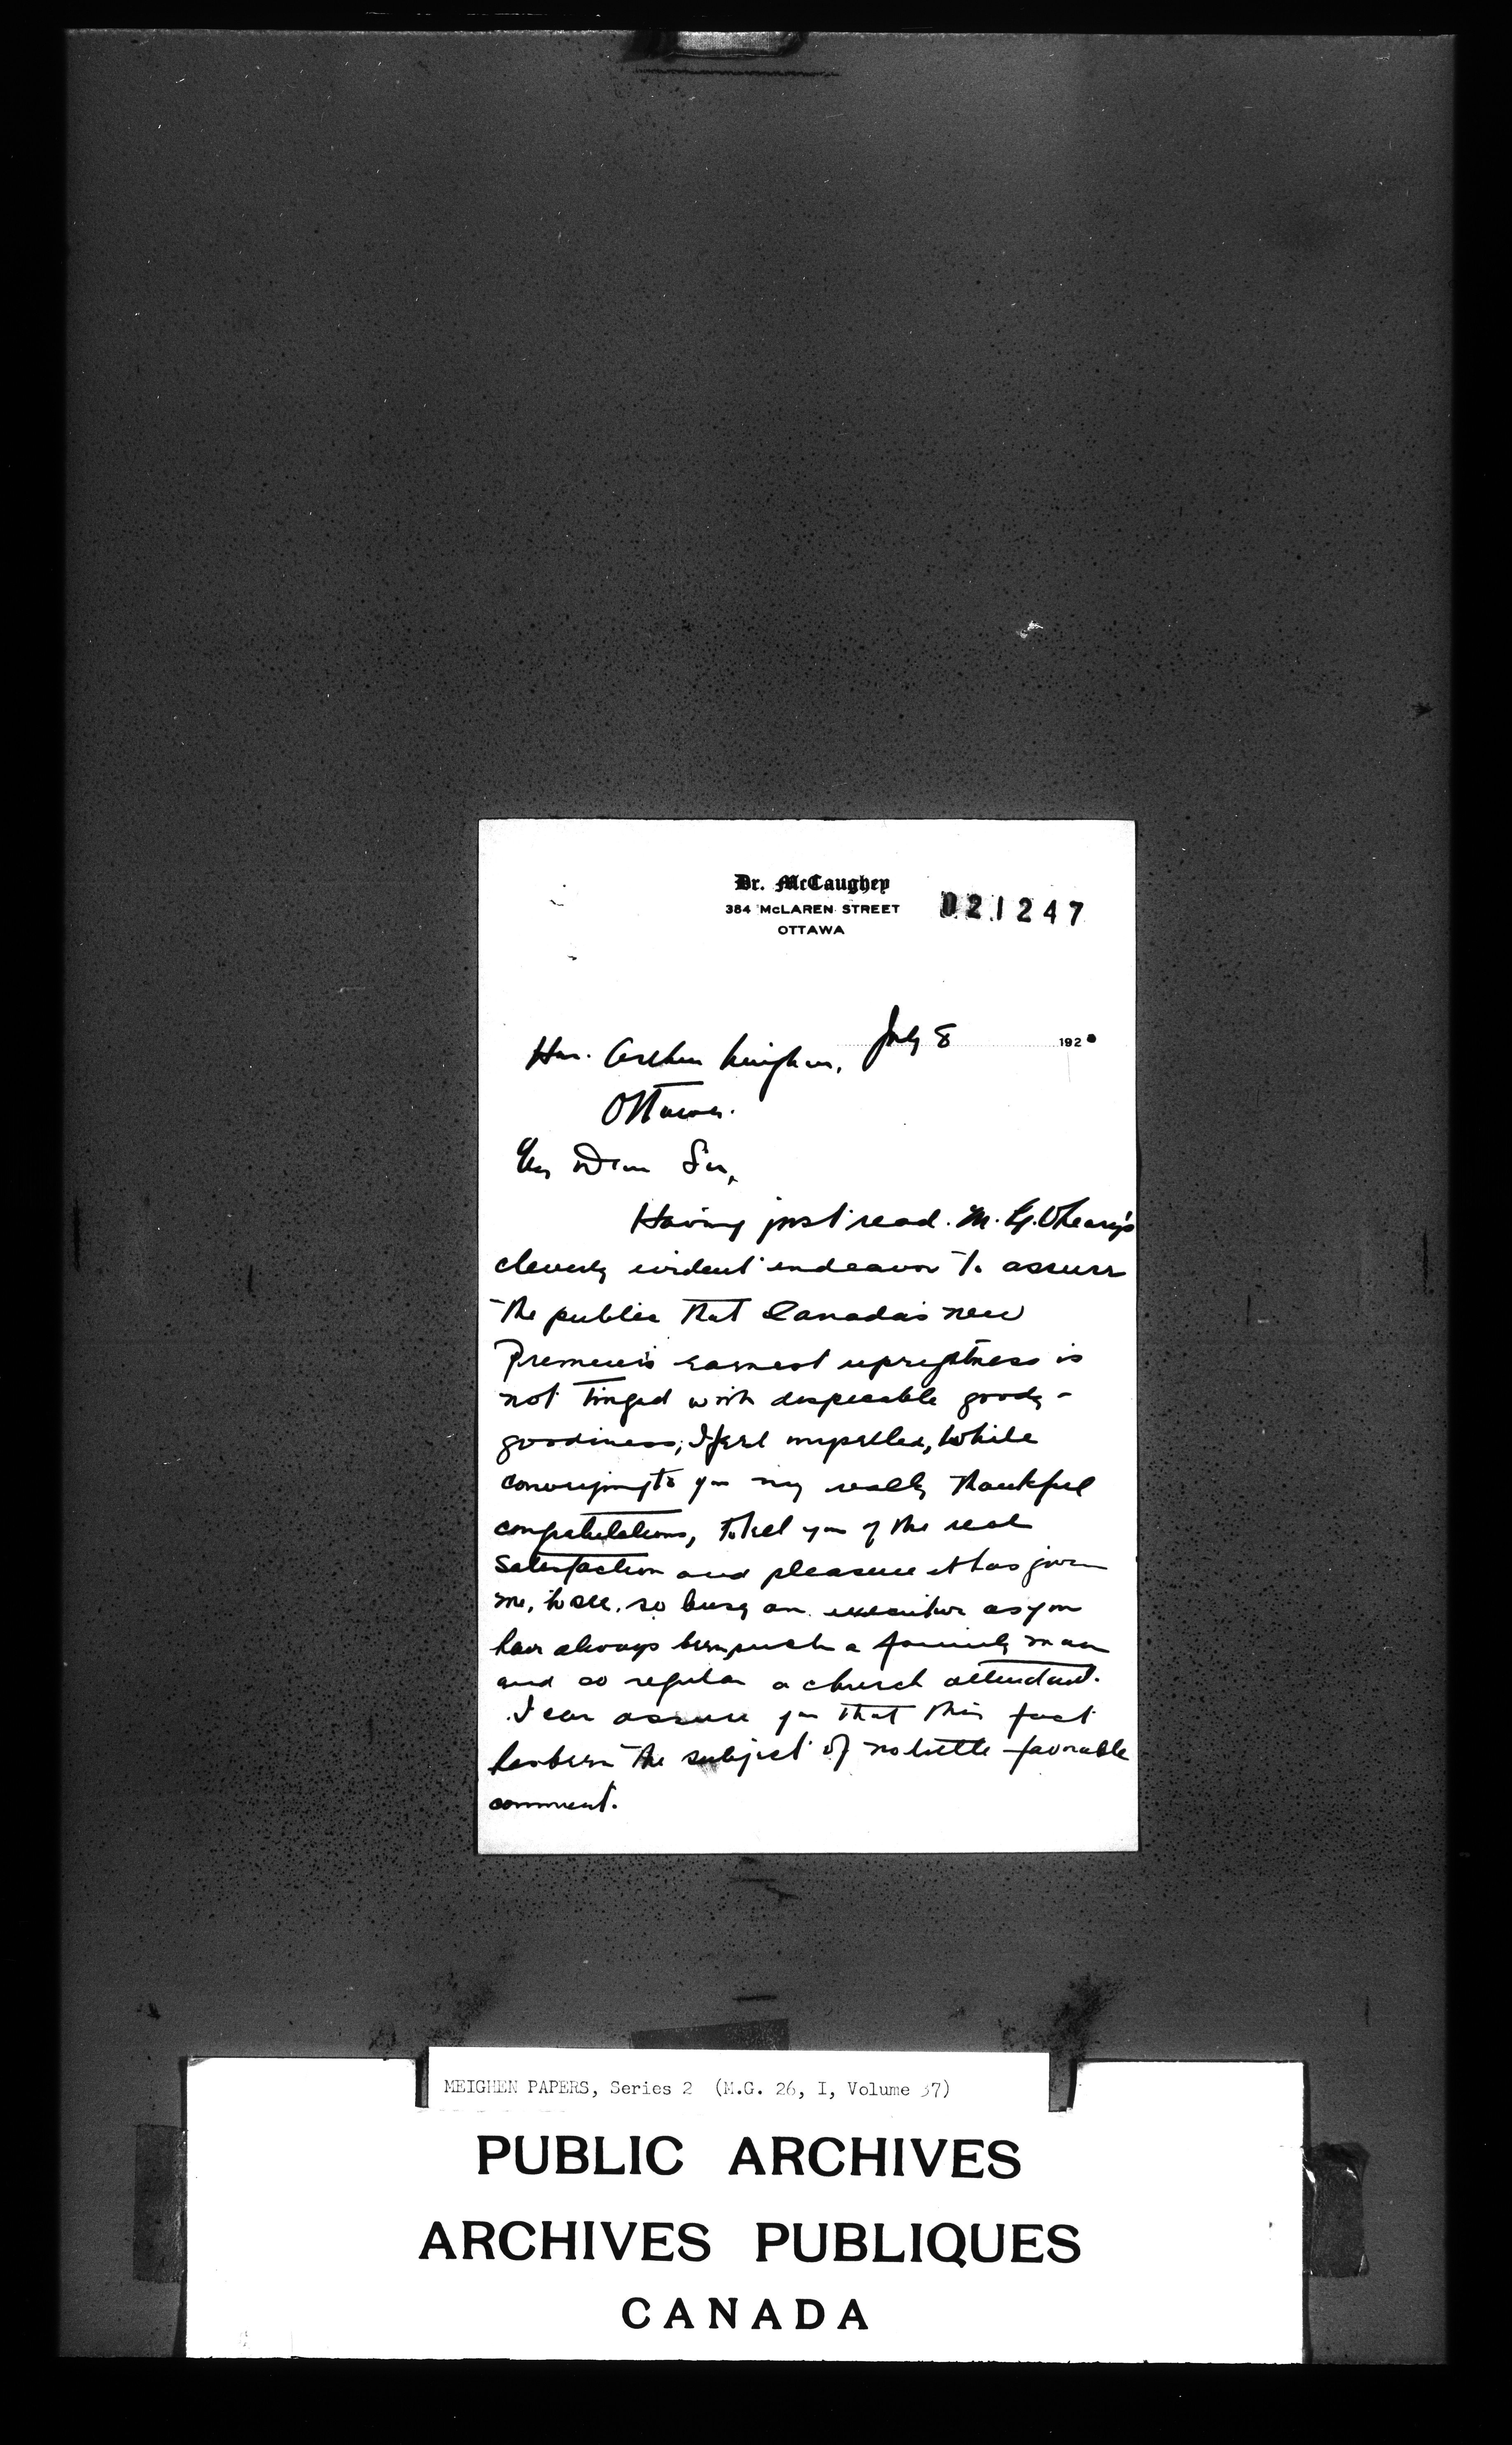 Dr. McCaughey
384 McLAREN STREET
OTTAWA
021247
July 8 1920
Hon. Arthur Meighen,
Ottawa.
My Dear Sir,
Having just read M. G. O'Leary's
cleverly evident endeavor to assure
the public that Canada's new
Premier's earnest uprightness is
not tinged with despicable goody-
goodiness, I feel impelled, while
conveying to you my really thankful
congratulations, to tell you of the real
satisfaction and pleasure it has given
me, to see, so busy an executive as you
have always been, such a family man
and so regular a church attendant.
I can assure you that this fact
has been the subject of no little favorable
comment.
MEIGHEN PAPERS, Series 2 (M.G. 26, I, Volume 37)
PUBLIC ARCHIVES
ARCHIVES PUBLIQUES
CANADA